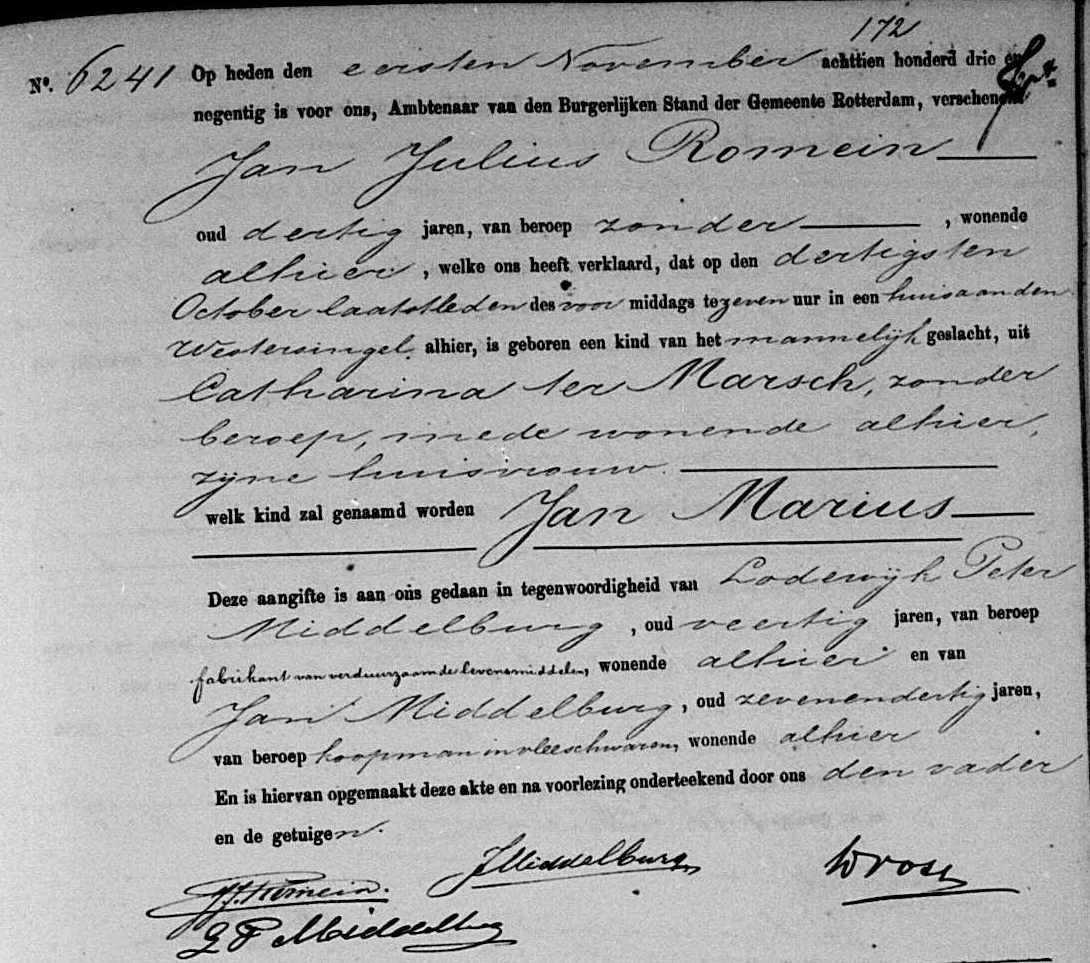 172
No. 6241 Op heden den eersten November achttien honderd drie en
negentig is voor ons, Ambtenaar van den Burgerlijken Stand der Gemeente Rotterdam, verschenen
Jan Julius Romein
oud dertig jaren, van beroep zonder, wonende
alhier, welke ons heeft verklaard, dat op den dertigsten
October laatstleden des voor middags te zeven uur in een huis aan den
Westersingel alhier, is geboren een kind van het mannelijk geslacht, uit
Catharina ter Marsch, zonder
beroep, mede wonende alhier,
zijne huisvrouw.
welk kind zal genaamd worden Jan Marius
Deze aangifte is aan ons gedaan in tegenwoordigheid van Lodewijk Peter
Middelburg, oud veertig jaren, van beroep
fabrikant van verduurzaamde levensmiddelen, wonende alhier en van
Jan Middelburg, oud zevenendertig jaren,
van beroep koopman in vleeschwaren, wonende alhier
En is hiervan opgemaakt deze akte en na voorlezing onderteekend door ons den vader
en de getuigen.
JMiddelburg
JJRomein.
L P Middelburg